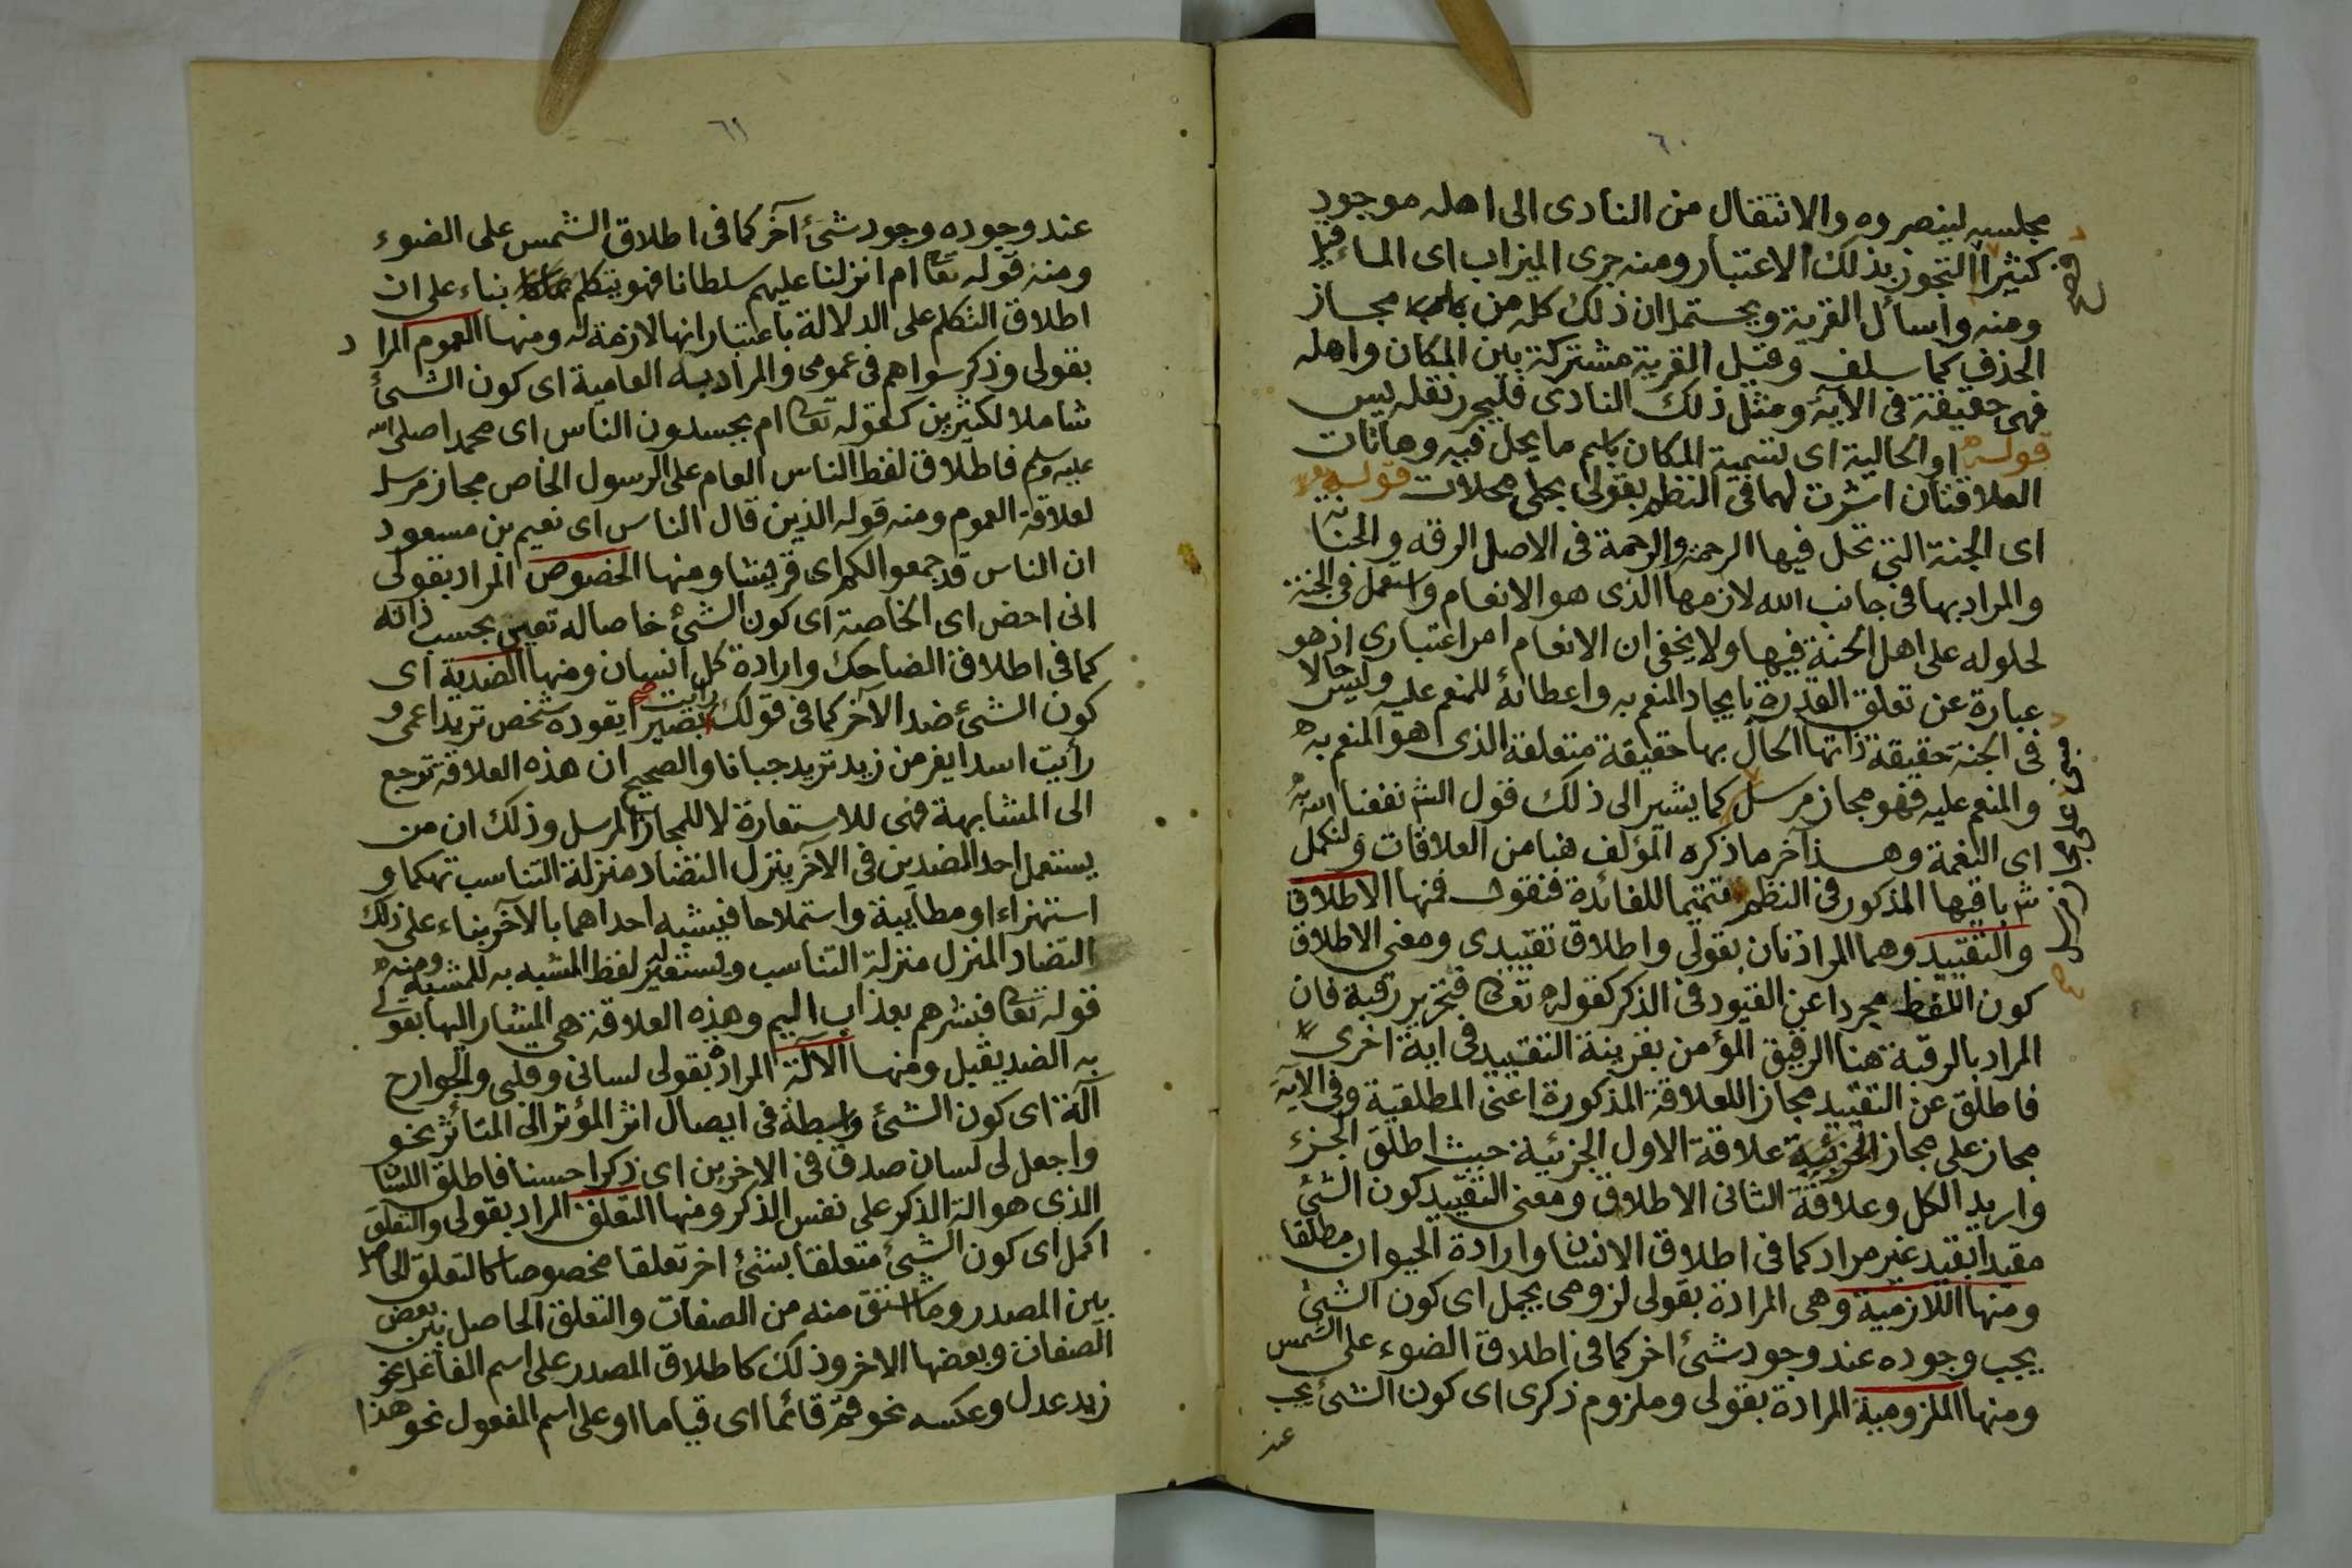 ٦٠
مجلسه لينصروه والانتقال من النادى الى اهله موجود
كثيرا التجوز بذلك الاعتبار ومنه جرى الميزاب اى الماء فيه
ومنه واسأل القرية ويحتمل ان ذلك كله من باب مجاز
الحذف كما سلف وقيل القرية مشتركة بين المكان واهله
فهى حقيقة فى الآية ومثل ذلك النادى فليحرر نقله يس
قوله او الحالية اى تسمية المكان باسم ما يحل فيه وهاتان
العلاقتان اشرت لهما فى النظم بقولى محلات قوله
اى الجنة التى تحل فيها الرحمة والرحمة فى الاصل الرقه والحنا
والمراد بها فى جانب الله لازمها الذى هو الانعام واستعمل فى الجنة
لحلوله على اهل الجنة فيها ولا يخفى ان الانعام امر اعتبارى اذ هو
عبارة عن تعلق القدرة بايجاد المنعم به واعطائه للمنعم عليه وليس حالا
فى الجنة حقيقة ذاتها الحال بها حقيقة متعلقة الذى هو المنعم به
والمنعم عليه فهو مجاز مرسل كما يشير الى ذلك قول الش نفعنا الله به
اى النعمة وهذا آخر ما ذكره المؤلف هنا من العلاقات ولنكمل
باقيها المذكور فى النظم تتميما للفائدة فنقول فمنها الاطلاق
والتقييد وهما المرادنان بقولى واطلاق تقييدى ومعنى الاطلاق
كون اللفظ مجردا عن القيود فى الذكر كقوله تعالى فتحرير رقبة فان
المراد بالرقبة هنا الرقيق المؤمن بقرينة التقييد فى اية اخرى
فاطلق عن التقييد مجازا للعلاقة المذكورة اعنى المطلقية وفى الآية
مجاز على مجاز علاقة الاول الجزئية حيث اطلق الجزء
واريد الكل وعلاقة الثانى الاطلاق ومعنى التقييد كون الشئ
مقيدا بقيد غير مراد كما فى اطلاق الانسان وارادة الحيوان مطلقا
ومنها اللازمية وهى المرادة بقولى لزومى يجمل اى كون الشئ
يجب وجوده عند وجود شئ اخر كما فى اطلاق الضوء على الشمس
ومنها الملزومية المرادة بقولى وملزوم ذكرى اى كون الشئ يجب
عند
٦١
عند وجوده وجود شئ آخر كما فى اطلاق الشمس على الضوء
ومنه قوله تعا ام انزلنا عليهم سلطانا فهو يتكلم بناء على ان
اطلاق التكلم على الدلالة باعتبار انها لازمة له ومنها العموم المراد
بقولى وذكر سواهم فى عمومى والمراد به العامية اى كون الشئ
شاملا لكثيرين كقوله تعا ام يحسدون الناس اى محمدا صلى الله
عليه وسلم فاطلاق لفظ الناس العام على الرسول الخاص مجاز مرسل
لعلاقة العموم ومنه قوله الذين قال الناس اى نعيم بن مسعود
ان الناس قد جمعوا لكم اى قريشا ومنها الخصوص المراد بقولى
انى احض اى الخاصة اى كون الشئ خاصا له تعين بحسب ذاته
كما فى اطلاق الضاحك وارادة كل انسان ومنها الضدية اى
كون الشئ ضد الآخر كما فى قولك رأيت بصيرا يقوده شخص تريد اعمى و
رأيت اسدا يفر من زيد تريد جبانا والصحيح ان هذه العلاقة ترجع
الى المشابهة فهى للاستعارة لا للمجاز المرسل وذلك ان من
يستعمل احد الضدين فى الآخر ينزل التضاد منزلة التناسب تهكما و
استهزاء او مطايبة واستملاحا فيشبه احداهما بالآخر بناء على ذلك
التضاد المنزل منزلة التناسب ويستعير لفظ المشبه به للمشبه ومنه
قوله تعا فبشرهم بعذاب اليم وهذه العلاقة هى المشار اليها بقولى
به الضد يقبل ومنها الآلة المرادة بقولى لسانى وقلبى والجوارح
آلة اى كون الشئ واسطة فى ايصال اثر المؤثر الى المتأثر نحو
واجعل لى لسان صدق فى الاخرين اى ذكرا حسنا فاطلق اللسا
الذى هو الة الذكر على نفس الذكر ومنها التعلق المراد بقولى والتعلق
اكمل اى كون الشئ متعلقا بشئ اخر تعلقا مخصوصا كالتعلق الحاصل
بين المصدر وما اشتق منه من الصفات والتعلق الحاصل بين بعض
الصفات وبعضها الاخر وذلك كاطلاق المصدر على اسم الفاعل نحو
زيد عدل وعكسه نحو قم قائما اى قياما او على اسم المفعول نحو هذا